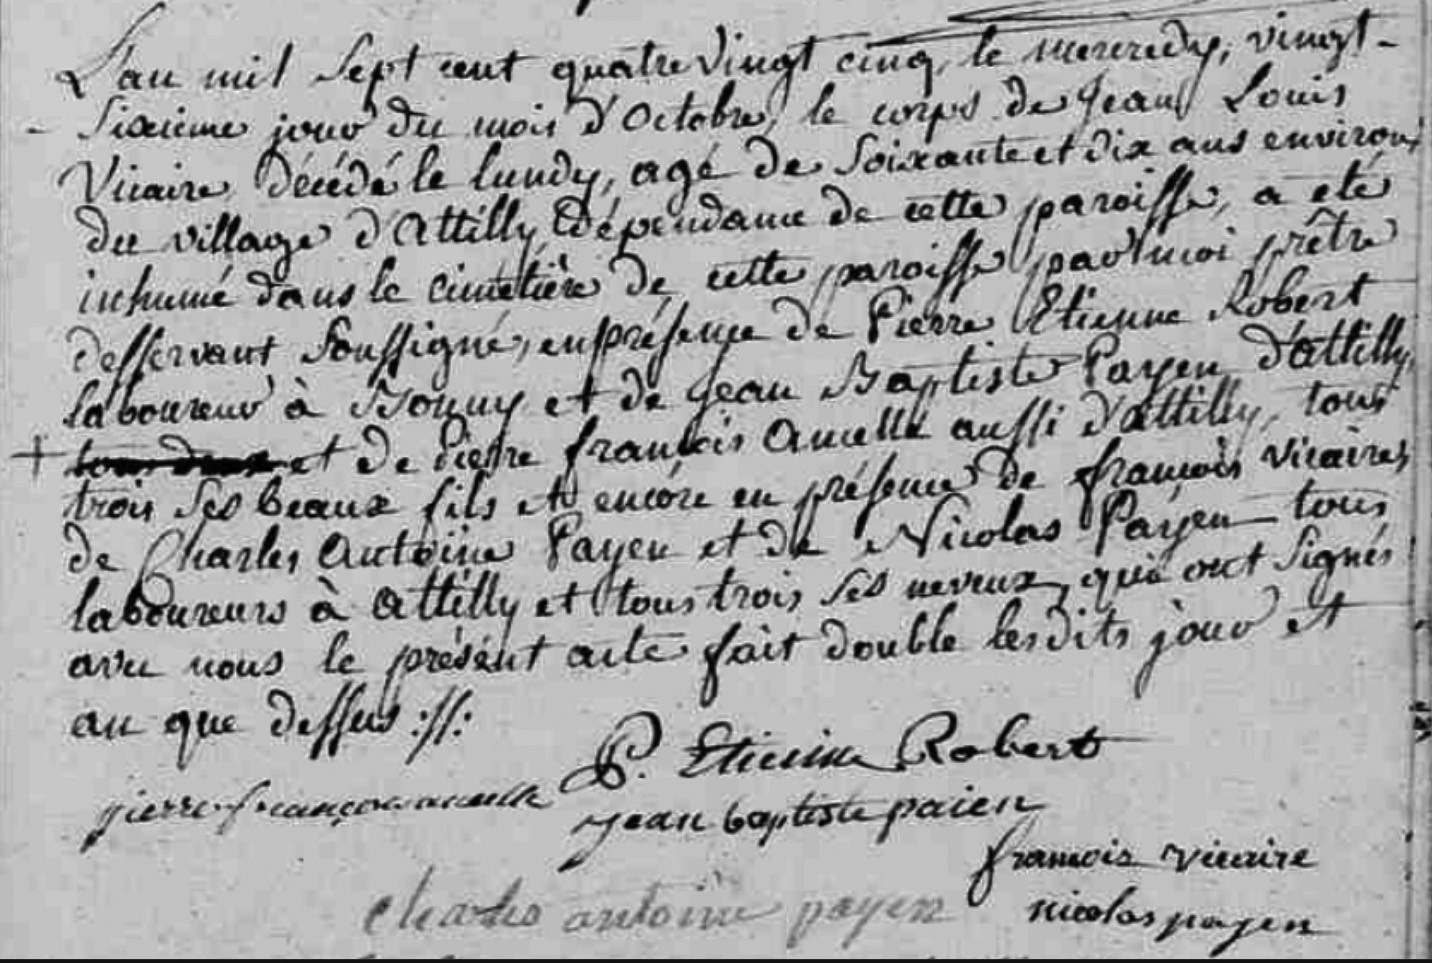 L'an mil sept cent quatre vingt cinq, le mercredy, vingt-
- sixieme jour du mois d'Octobre, le corps de Jean Louis
Vicaire, décédé le lundy, agé de soixante et dix ans environ,
du village d'Attilly, dépendance de cette paroisse, a été
inhumé dans le cimetière de cette paroisse par moi prêtre
desservant soussigné, en présence de Pierre Etienne Robert
laboureur à et de Jean Baptiste Payen d'attilly,
+ tous deux et de Pierre françois Amelle aussi d'attilly, tous
trois ses beaux fils et encore en présence de françois vicaire,
de Charles Antoine Payen et de Nicolas Payen tous
laboureurs à attilly et tous trois ses neveux, qui ont signés
avec nous le présent acte fait double lesdits jour et
an que dessus ://:
P. Etienne Robert
pierre françois amelle
jean baptiste paien
francois vicaire
charles antoine payen
nicolas payen